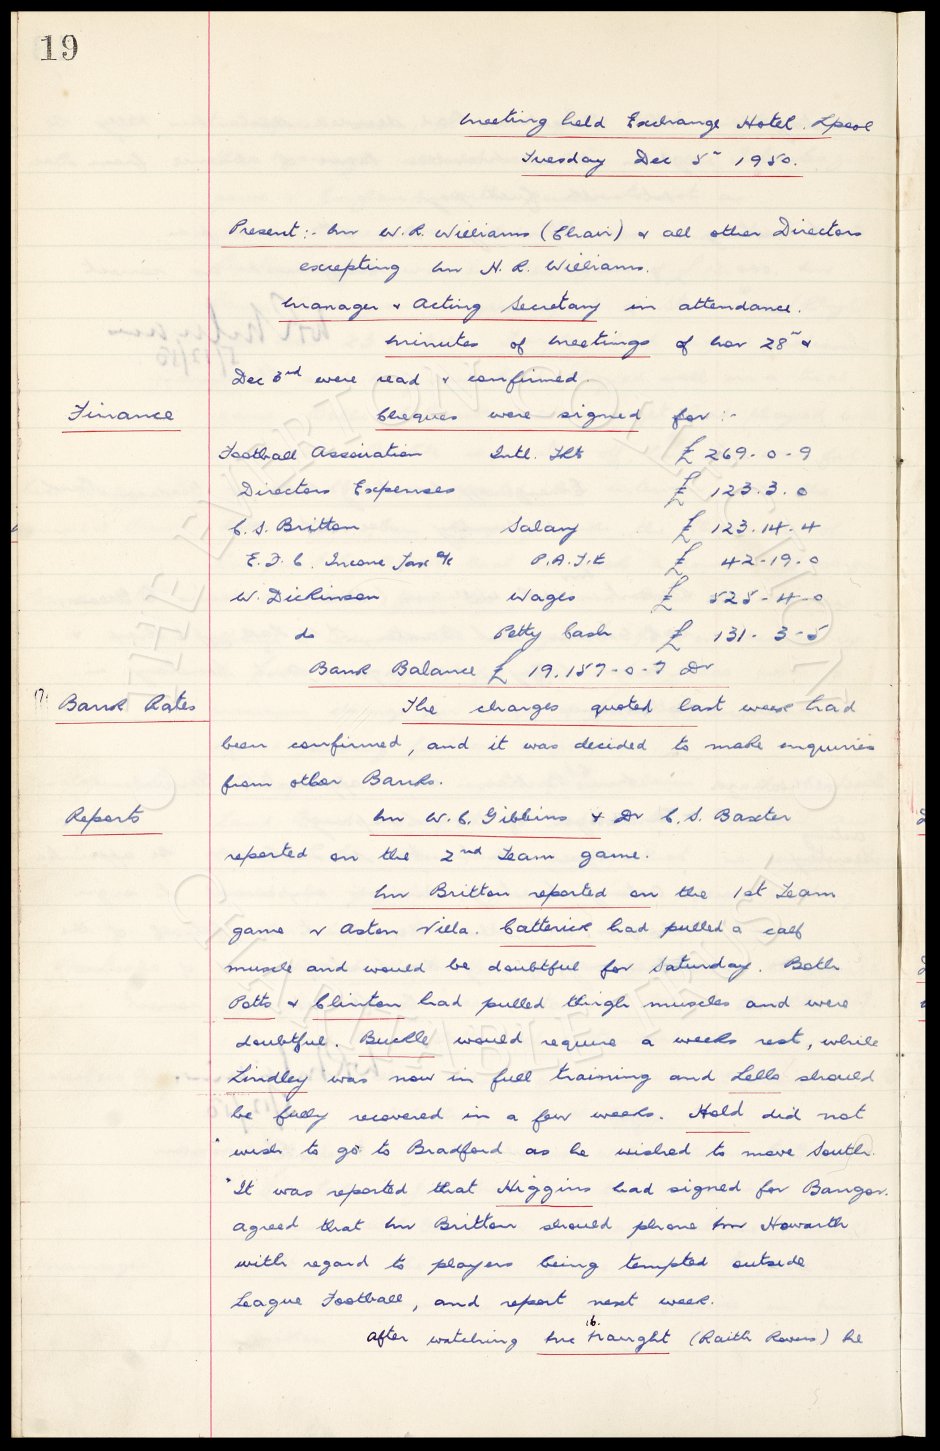 19
Meeting held Exchange Hotel. Lpool
Tuesday Dec 5th 1950.
Present:- Mr W.R. Williams (Chair) & all other Directors
excepting Mr H.R. Williams.
Manager & Acting Secretary in attendance.
Minutes of Meetings of Nov 28th &
Dec 3rd were read & confirmed.
Finance Cheques were signed for:-
Football Association Intl. Tkts £ 269-0-9
Directors Expenses £ 123.3.0
C.S. Britton Salary £ 123.14.4
E.F.C. Income Tax a/c P.A.Y.E £ 42-19-0
W. Dickinson Wages £ 525-4-0
do Petty Cash £ 131-3-5
Bank Balance £ 19,157-0-7 Dr
Bank Rates The charges quoted last week had
been confirmed, and it was decided to make enquiries
from other Banks.
Reports Mr W.C. Gibbins & Dr C.S. Baxter
reported on the 2nd Team game.
Mr Britton reported on the 1st Team
game v Aston Villa. Catterick had pulled a calf
muscle and would be doubtful for Saturday. Both
Potts & Clinton had pulled thigh muscles and were
doubtful. Buckle would require a weeks rest, while
Lindley was now in full training and Lello should
be fully recovered in a few weeks. Hold did not
wish to go to Bradford as he wished to move South.
"It was reported that Higgins had signed for Bangor.
Agreed that Mr Britton should phone Mr Howarth
with regard to players being tempted outside
League Football, and report next week.
After watching McNaught (Raith Rovers) he